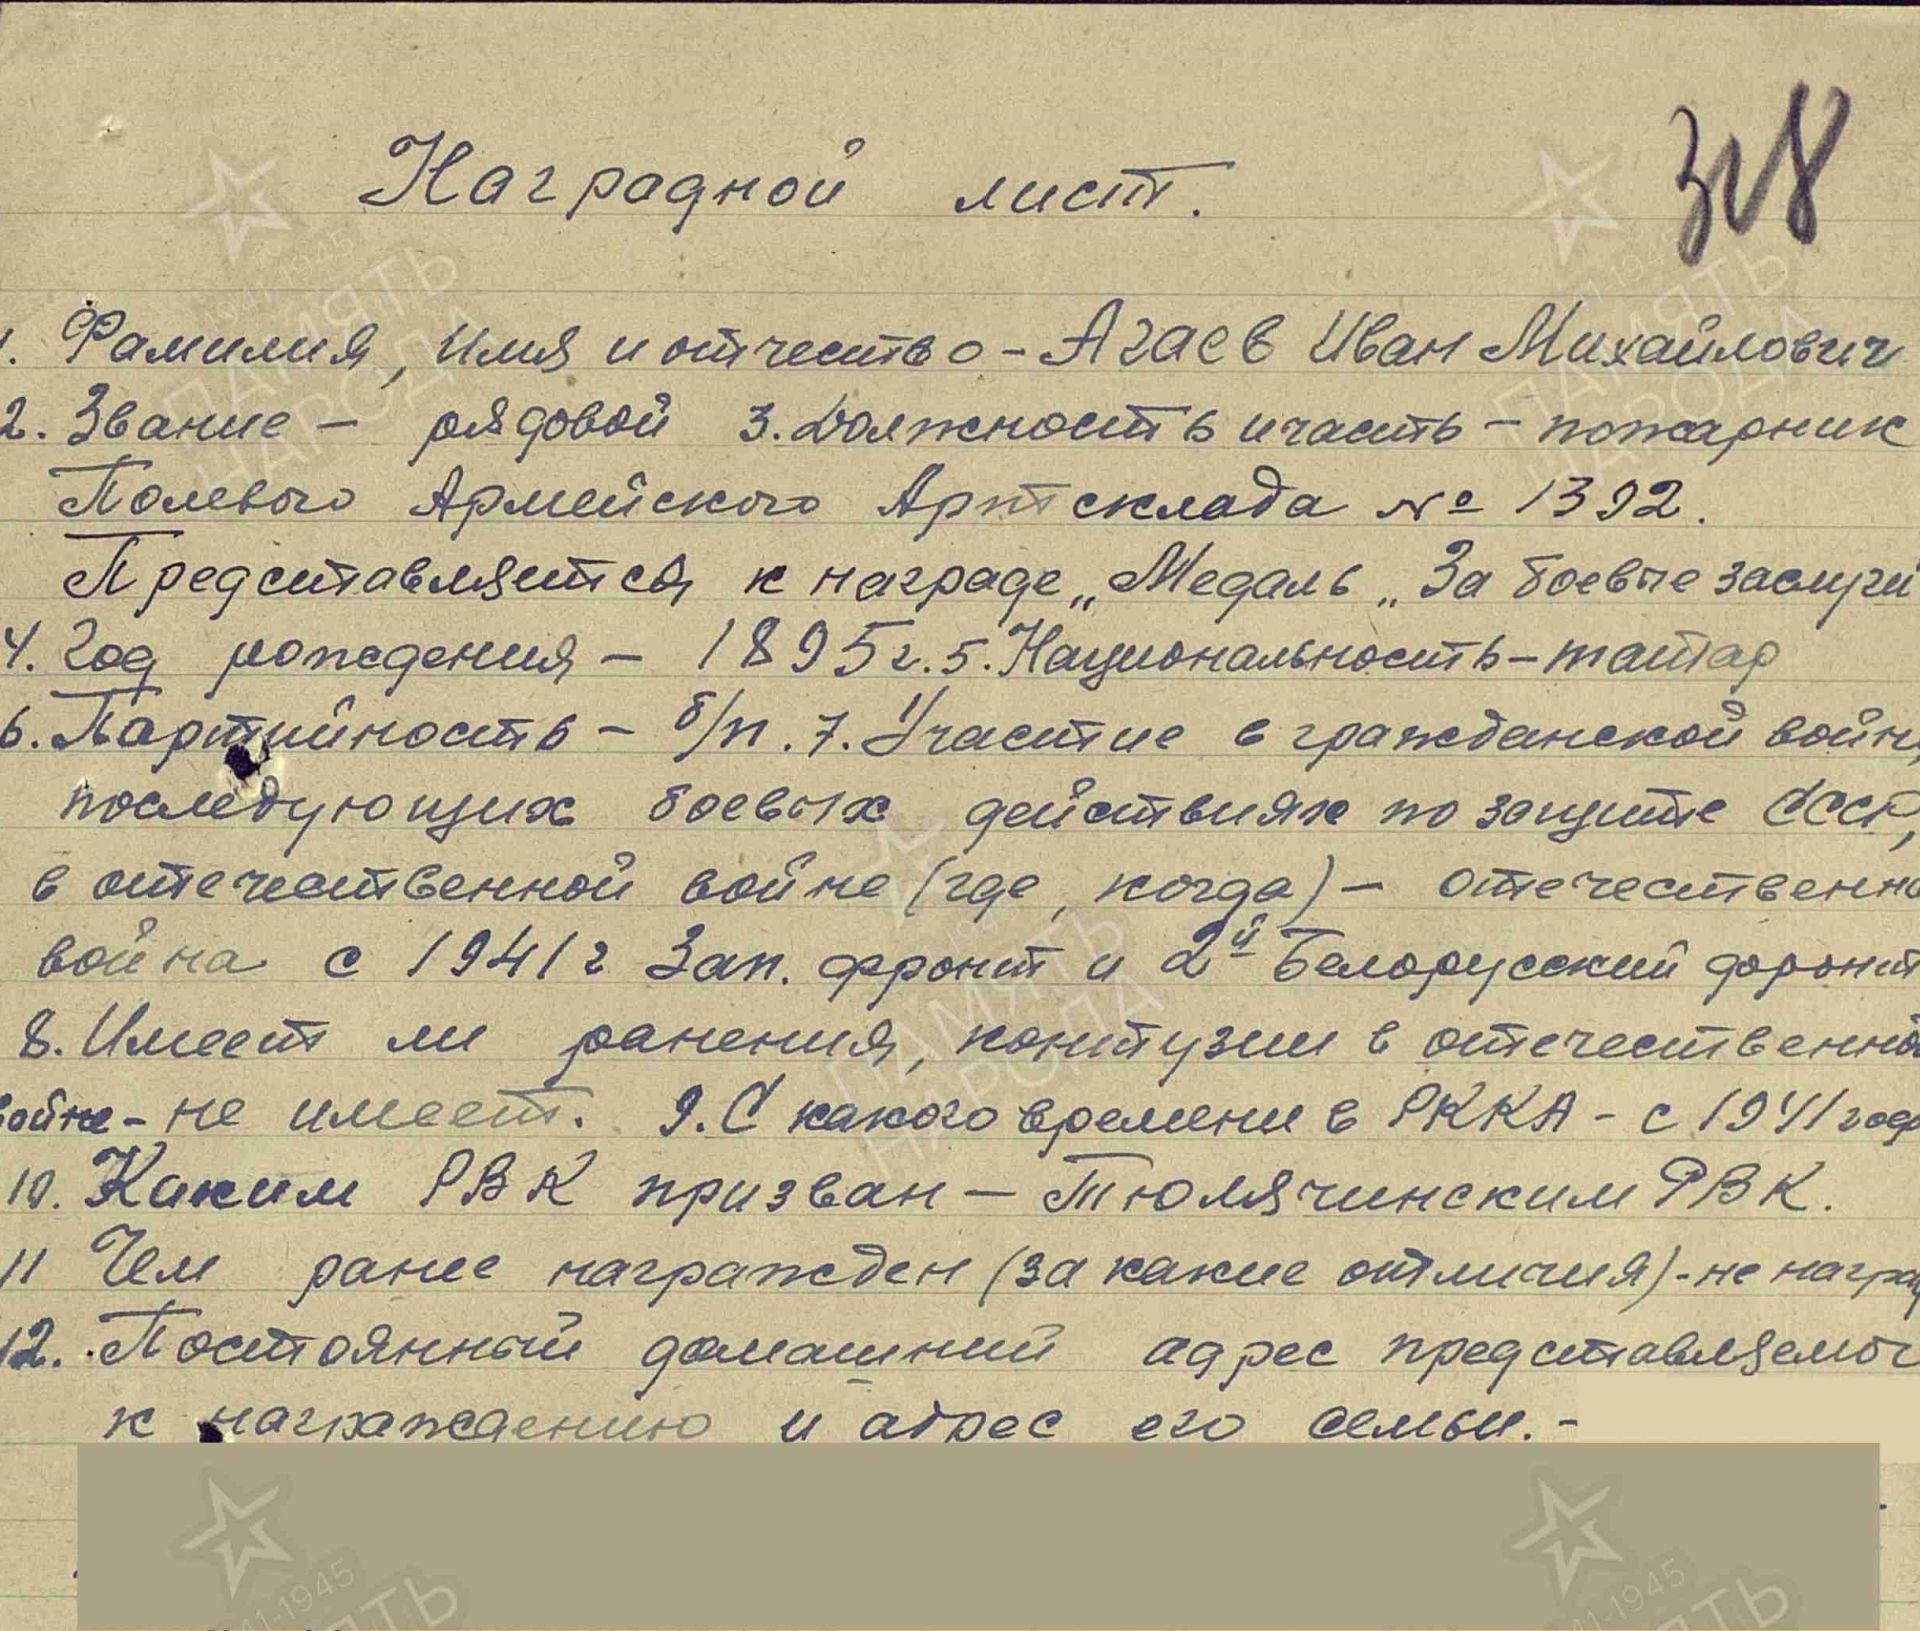 328
Наградной лист.
1. Фамилия, Имя и отчество - Агаев Иван Михайлович
2. Звание - рядовой 3. Должность и часть - пожарник
Полевого Армейского Артсклада № 1392.
Представляется к награде „Медаль „За боевые заслуги
4. Год рождения - 1895 г. 5. Национальность - татар
6. Партийность - б/п. 7. Участие в гражданской войн
последующих боевых действиях по защите СССР,
в отечественной войне (где, когда) - отечественно
война с 1941 г Зап. фронт и 2й Белорусский фронт
8. Имеет ли ранения, контузии в отечественной
войне - не имеет. 9. С какого времени в РККА - с 1941 год
10. Каким РВК призван - Тюлячинским РВК.
11 Чем ранее награжден (за какие отличия) - не награ
12. Постоянный домашний адрес представляемог
к награждению и адрес его семьи. -
ПАМЯТЬ НАРОДА
1941-1945